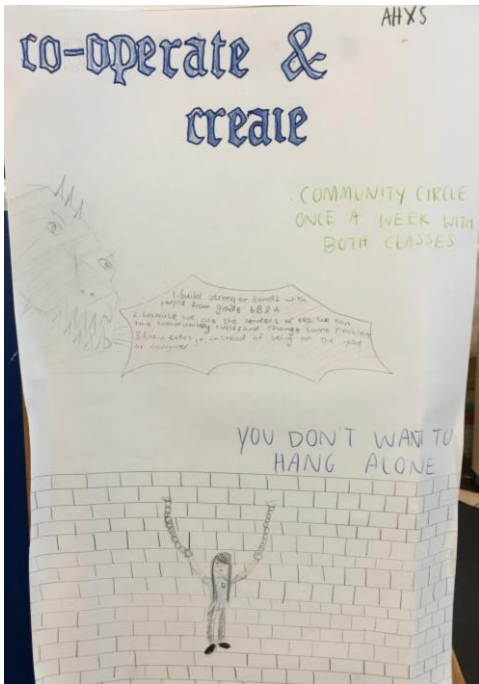 AHXS
co-operate &
create
COMMUNITY CIRCLE
ONCE A WEEK WITH
BOTH CLASSES
1. build stronger bonds with
people from grade 6B&A
2. because we are the of we can
community circles and change some problems
3. instead of being on the
or computer
YOU DON'T WANT TO
HANG ALONE